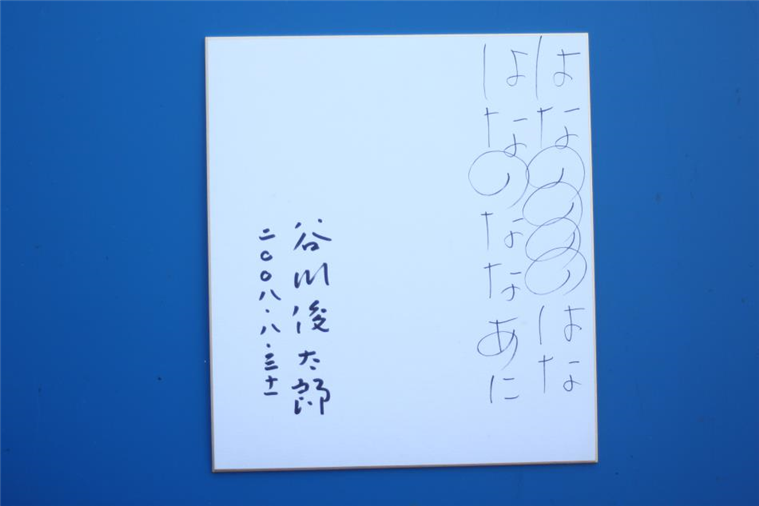 はなののののはな
はなのななあに
谷川俊太郎
二〇〇八・八・三十一